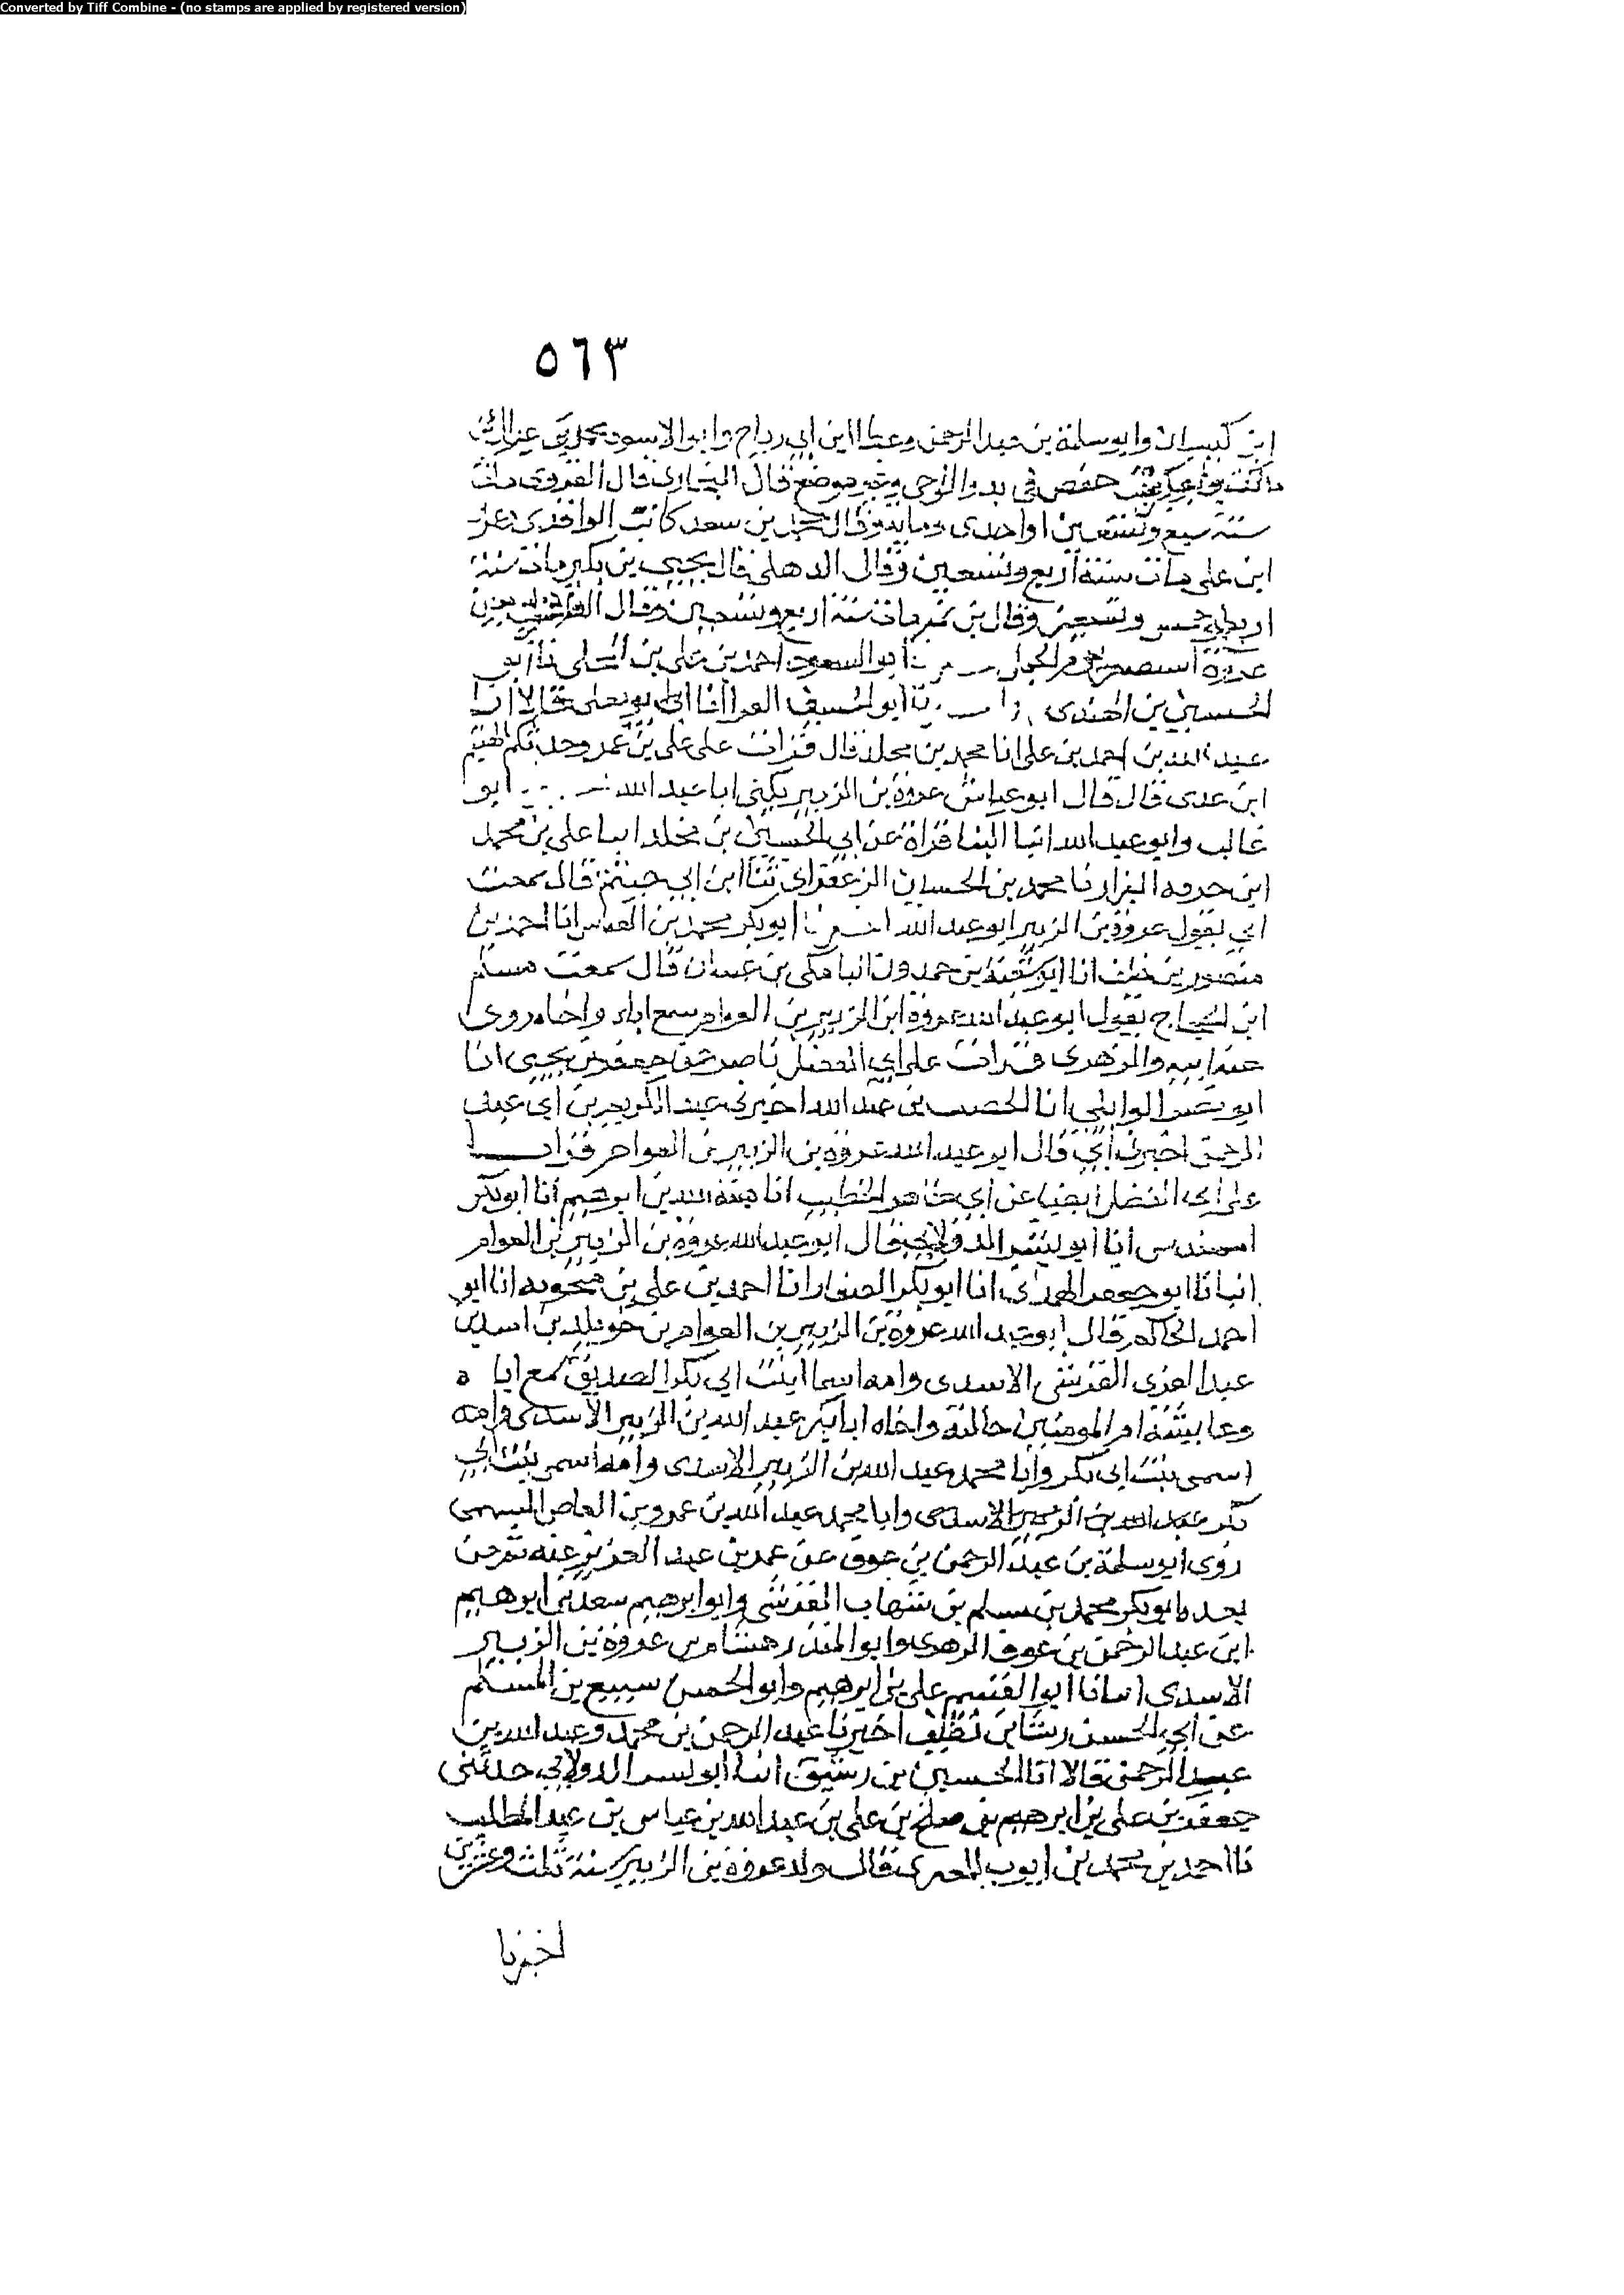 Converted by Tiff Combine - (no stamps are applied by registered version)
٥٦٣
ابن كيسان وابو سلمة بن عبد الرحمن وعطا ابن ابي رباح وابو الاسود محمد بن عبد الرحمن
حفص في بدو الوحي وغير موضع قال البخاري قال الفروي مات
سنة سبع وتسعين او احدى ومايه وقال محمد بن سعد كاتب الواقدي عن
ابن علي مات سنة اربع وتسعين وقال الذهلي قال يحيى بن بكير مات سنة
اربع او خمس وتسعين وقال بن نمير مات سنة اربع وتسعين وقال
عروة استصغر يوم الجمل نا ابو السعود احمد بن علي بن المجلي نا ابو
الحسين بن المهتدى نا ابو الحسين الفرا انا ابي ابو يعلى قالا انا
عبيد الله بن احمد بن علي انا محمد بن مخلد قال قرات على علي بن عمرو حدثكم الهيثم
ابن عدى قال قال ابو عياش عروة بن الزبير يكنى ابا عبد الله ابو
غالب وابو عبد الله ابنا البنا قراة عن ابي الحسين بن مخلد انبا علي بن محمد
ابن خزفه البزار نا محمد بن الحسين الزعفراني ثنا ابن ابي خيثمة قال سمعت
ابي يقول عروة بن الزبير ابو عبد الله نا ابو بكر محمد بن العباس انا احمد بن
منصور بن خلف انا ابو سعيد بن حمدون انبا مكي بن عبدان قال سمعت مسلم
ابن الحجاج يقول ابو عبد الله عروة ابن الزبير بن العوام سمع اباه واخاه روى
عنه ابنه والزهرى قرات على ابي الفضل بن ناصر عن جعفر بن يحيى انا
ابو نصر الوايلي انا الخصيب بن عبد الله اخبرنى عبد الكريم بن ابي عبد
الرحمن اخبرنى ابي قال ابو عبد الله عروة بن الزبير بن العوام قرات
على ابى الفضل ايضا عن ابي طاهر الخطيب انا هبة الله بن ابرهيم انا ابو بكر
المهندس انا ابو بشر الدولابي قال ابو عبد الله عروة بن الزبير بن العوام
انبانا ابو جعفر الهمذاني انا ابو بكر الصفار انا احمد بن علي بن منجويه انا ابو
احمد الحاكم قال ابو عبد الله عروة بن الزبير بن العوام بن خويلد بن اسد بن
عبد العزى القرشي الاسدى وامه اسما ابنت ابي بكر الصديق سمع ابا ه
وعايشة ام المومنين خالته واخاه ابا بكر عبد الله بن الزبير الاسدى وامه
اسمى بنت ابي بكر وابا محمد عبد الله بن الزبير الاسدى وامه اسمى بنت ابي
بكر عبد الله بن الزبير الاسدى وابا محمد عبد الله بن عمرو بن العاص السهمى
روى ابو سلمة بن عبد الرحمن بن عوف عن عمر بن عبد العزيز عنه ثم من
بعده ابو بكر محمد بن مسلم بن شهاب القرشي وابو ابرهيم سعد بن ابرهيم
ابن عبد الرحمن بن عوف الزهرى وابو المنذر هشام بن عروة بن الزبير
الاسدى انبانا ابو القسم علي بن ابرهيم وابو الحسن سبيع بن المسلم
عن ابي الحسن رشا بن نظيف اخبرنا عبد الرحمن بن محمد وعبد الله بن
عبد الرحمن قالا انا الحسين بن رشيق انبا ابو بشر الدولابي حدثني
جعفر بن علي بن ابرهيم بن صالح بن علي بن عبد الله بن عباس بن عبد المطلب
نا احمد بن محمد بن ايوب المصرى قال ولد عروة بن الزبير سنة ثلث وعشرين
اخبرنا